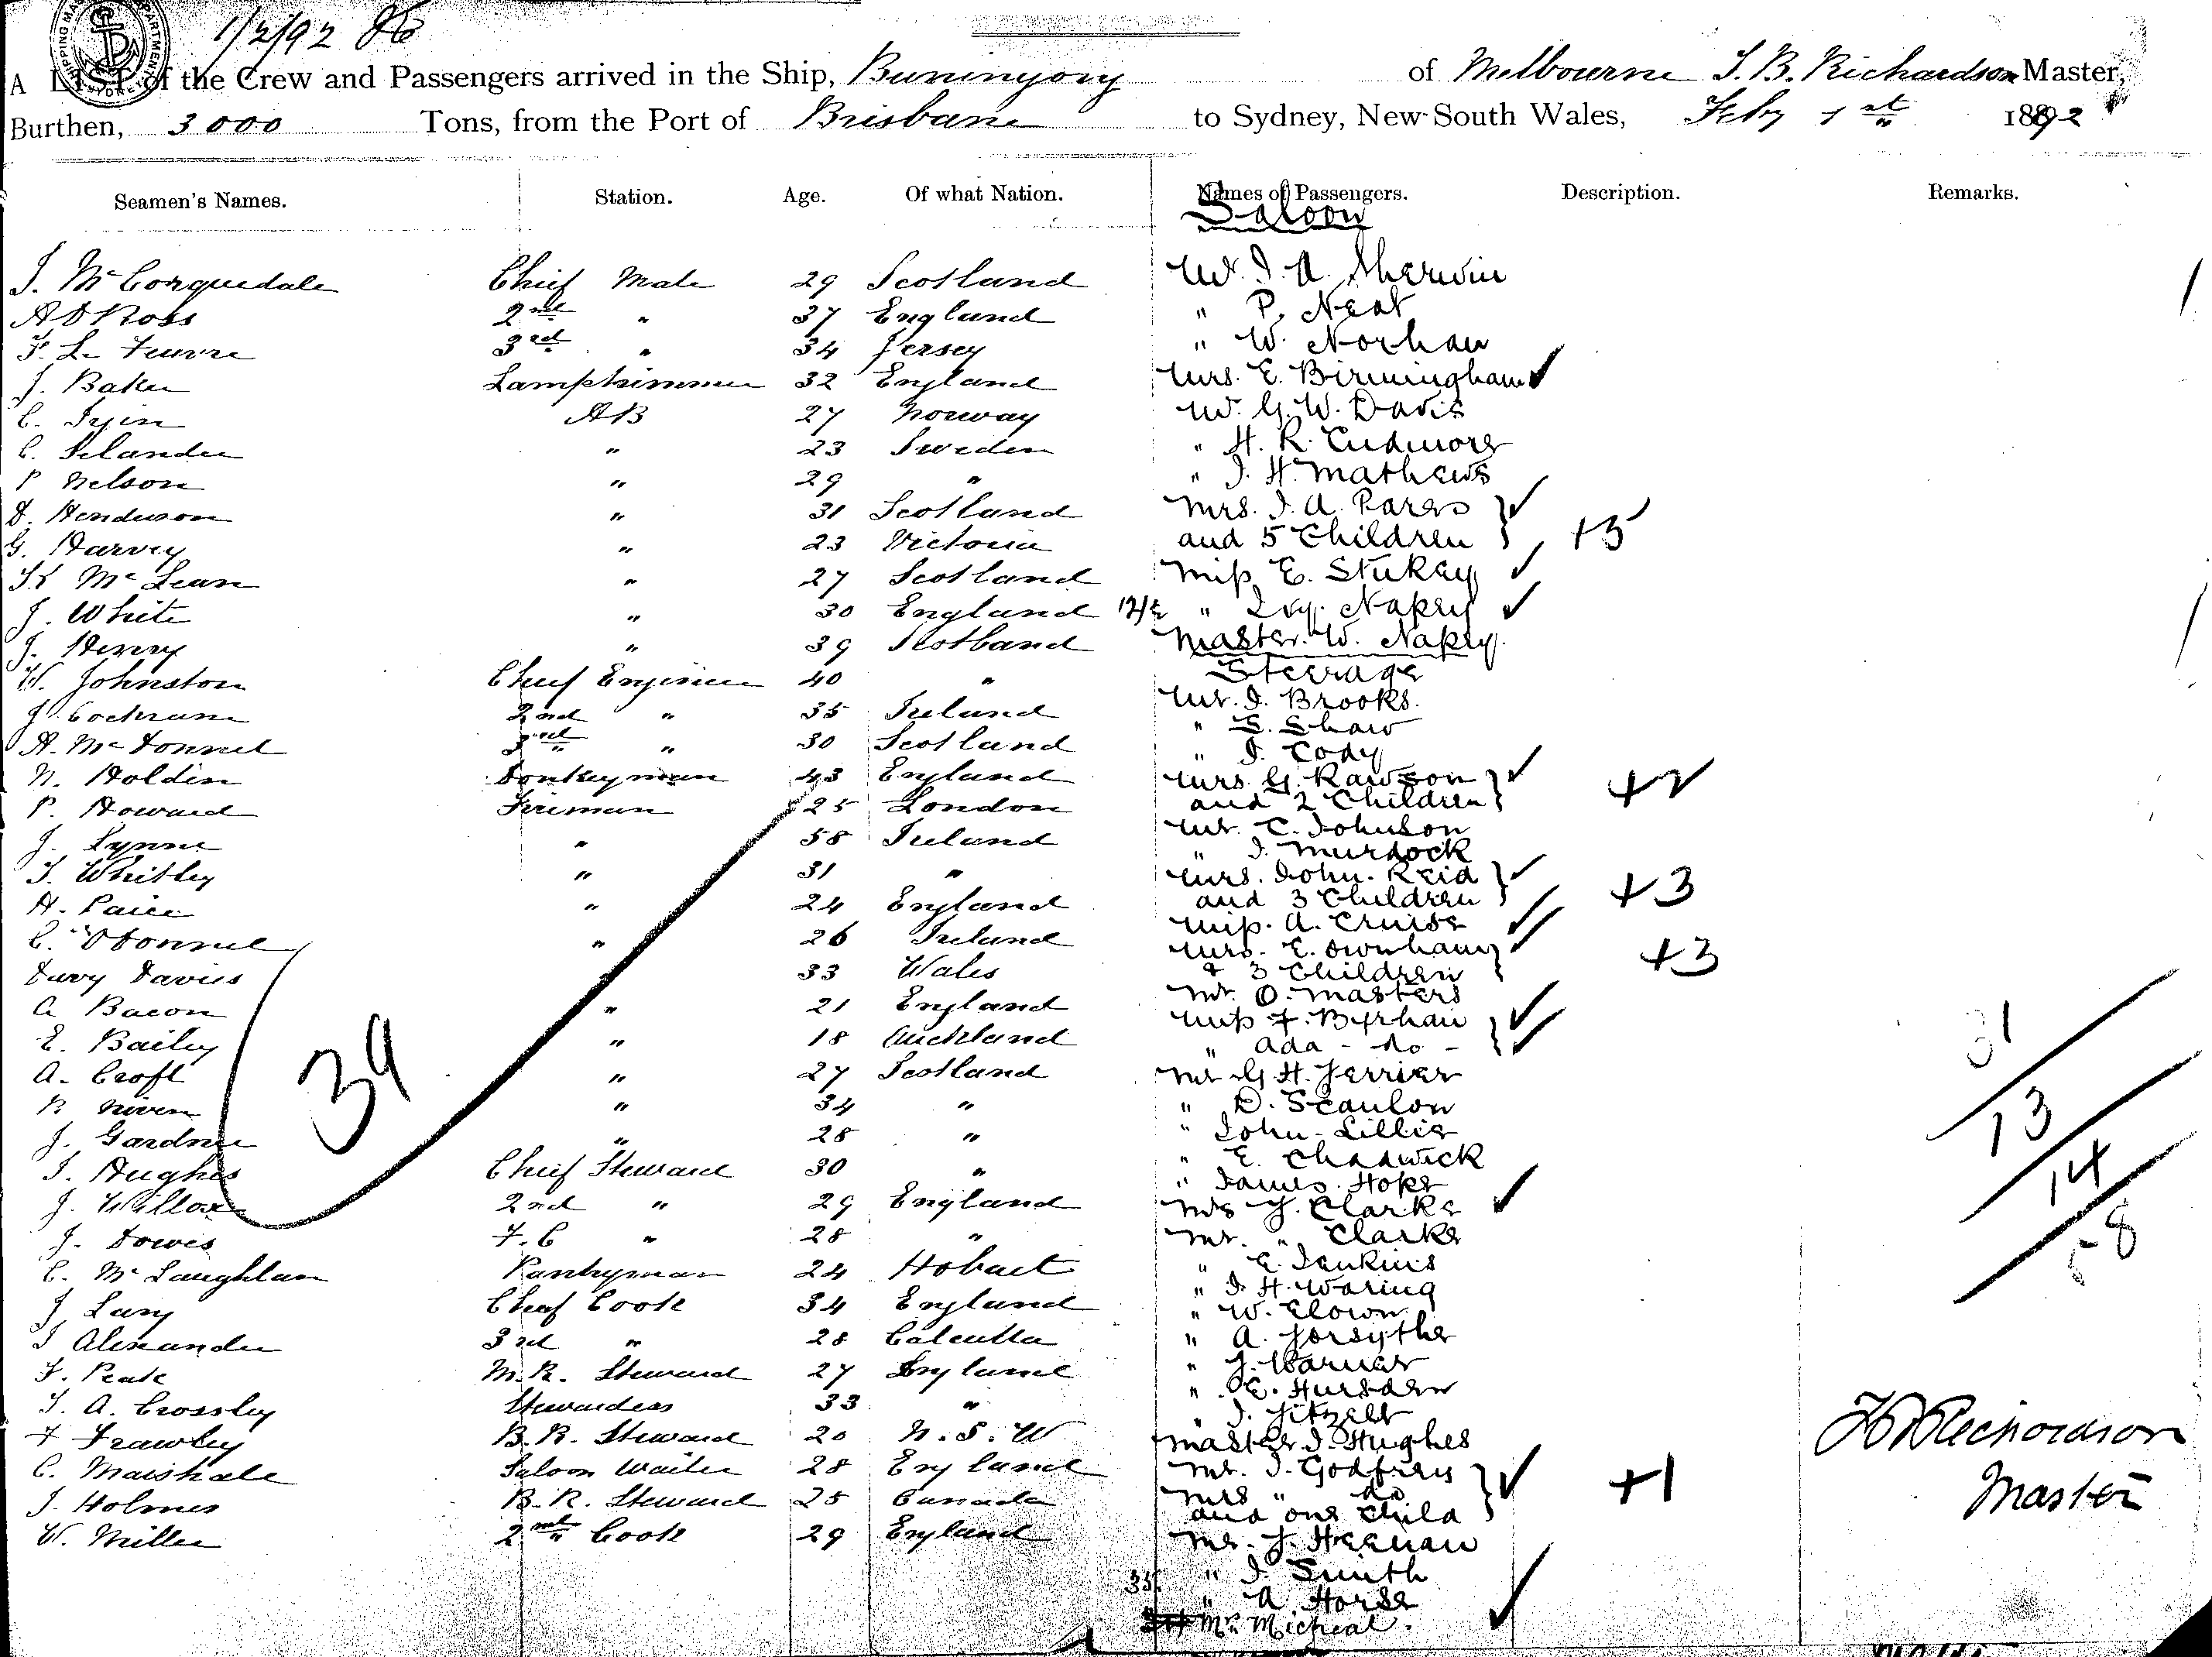 1/2/92
A LIST of the Crew and Passengers arrived in the Ship, Buninyong of Melbourne J. B. Richardson Master,
Burthen, 3000 Tons, from the Port of Brisbane to Sydney, New South Wales, Feby 1st 1892
Seamen's Names. Station. Age. Of what Nation. Names of Passengers. Description. Remarks.
Saloon
J. McCorquedale Chief Mate 29 Scotland Mr. J. A. Sherwin
A D Ross 2nd " 37 England " P. Neat
F. Le Feuvre 3rd " 34 Jersey " W. Norhan
J. Baker Lamptrimmer 32 England Mrs. E. Birmingham
C. Iyin AB 27 Norway Mr. G. W. Davis
C. Selander " 23 Sweden " H. R. Cudmore
P Nelson " 29 " " J. H. Mathews
D. Henderson " 31 Scotland Mrs. J. A. Pares
G. Harvey " 23 Victoria and 5 Children +5
McLean " 27 Scotland Miss E. Stukey
J. White " 30 England " Ivy. Napey
J. Henry " 39 Scotland Master. W. Napey.
W. Johnston Chief Engineer 40 " Steerage
J. Cochrane 2nd " 35 Ireland Mr. J. Brooks.
A. McDonnel 3rd " 30 Scotland " S. Shaw
" J. Cody
N. Holdin Donkeyman 43 England Mrs. G. Rawson +2
P. Howard Fireman 25 London and 2 Children
J. Lynne " 58 Ireland Mr. C. Johnson
" J. Murdock
J. Whitley " 31 " Mrs. John. Reid
H. Paice " 24 England and 3 Children +3
Miss. A. Cruise
C. O'Donnel " 26 Ireland Mrs. E. Ownham +3
Davy Davies 33 Wales & 3 Children
A Bacon " 21 England Mr. O. Masters
Miss F. Byrhan
E. Bailey " 18 Auckland " Ada - do -
A. Croft " 27 Scotland Mr G. H. Ferrier
R Niven " 34 " " D. Scanlon
J. Gardner " 28 " " John. Lillis
" E. Chadwick
J. Hughes Chief Steward 30 " " James. Hope
J. Willox 2nd " 29 England Mrs J. Clarke
J. Dowis F. C " 28 " Mr. " Clarke
C. McLaughlan Pantryman 24 Hobart " E. Jenkins
" J. H. Waring
J Lang Chief Cook 34 England " W. Clown
J Alexander 3rd " 28 Calcutta " A. Forsythe
F. Peate M. R. Steward 27 England " J. Warner
J. A. Crossley Stewardess 33 " " E. Hursden
" J. Fitzell
F Frawley B. R. Steward 20 N. S. W Master. J. Hughes
C. Marshale Saloon Waiter 28 England Mr. J. Godfrey
J. Holmes B. R. Steward 25 Canada Mrs " do +1
and one Child
W. Miller 2nd Cook 29 England Mr. J. Heenan
" J. Smith
" A. Horse
Mr. Micheal.
39
31
13
14
58
Richardson
Master